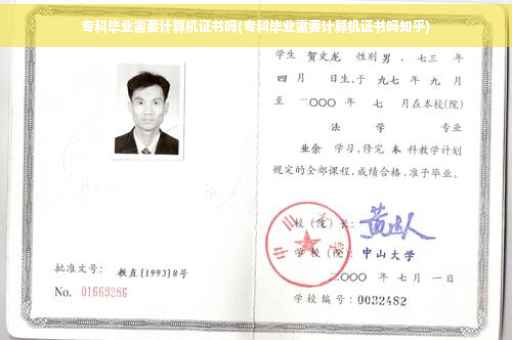 专科毕业需要计算机证书吗(专科毕业重要计算机证书吗知乎)
学生 贺文龙 性别 男 、七三 年
四 月 日生,于 九七 年 九 月
至 二〇〇〇 年 七 月在本校(院)
法 学 专业
业余 学习,修完 本 科教学计划
规定的全部课程,成绩合格,准予毕业。
校(院)长:
学校(院): 中山大学
二〇〇〇 年 七 月 一 日
批准文号: 教直[1993]8号
No. 01669286
学校编号: 0032482